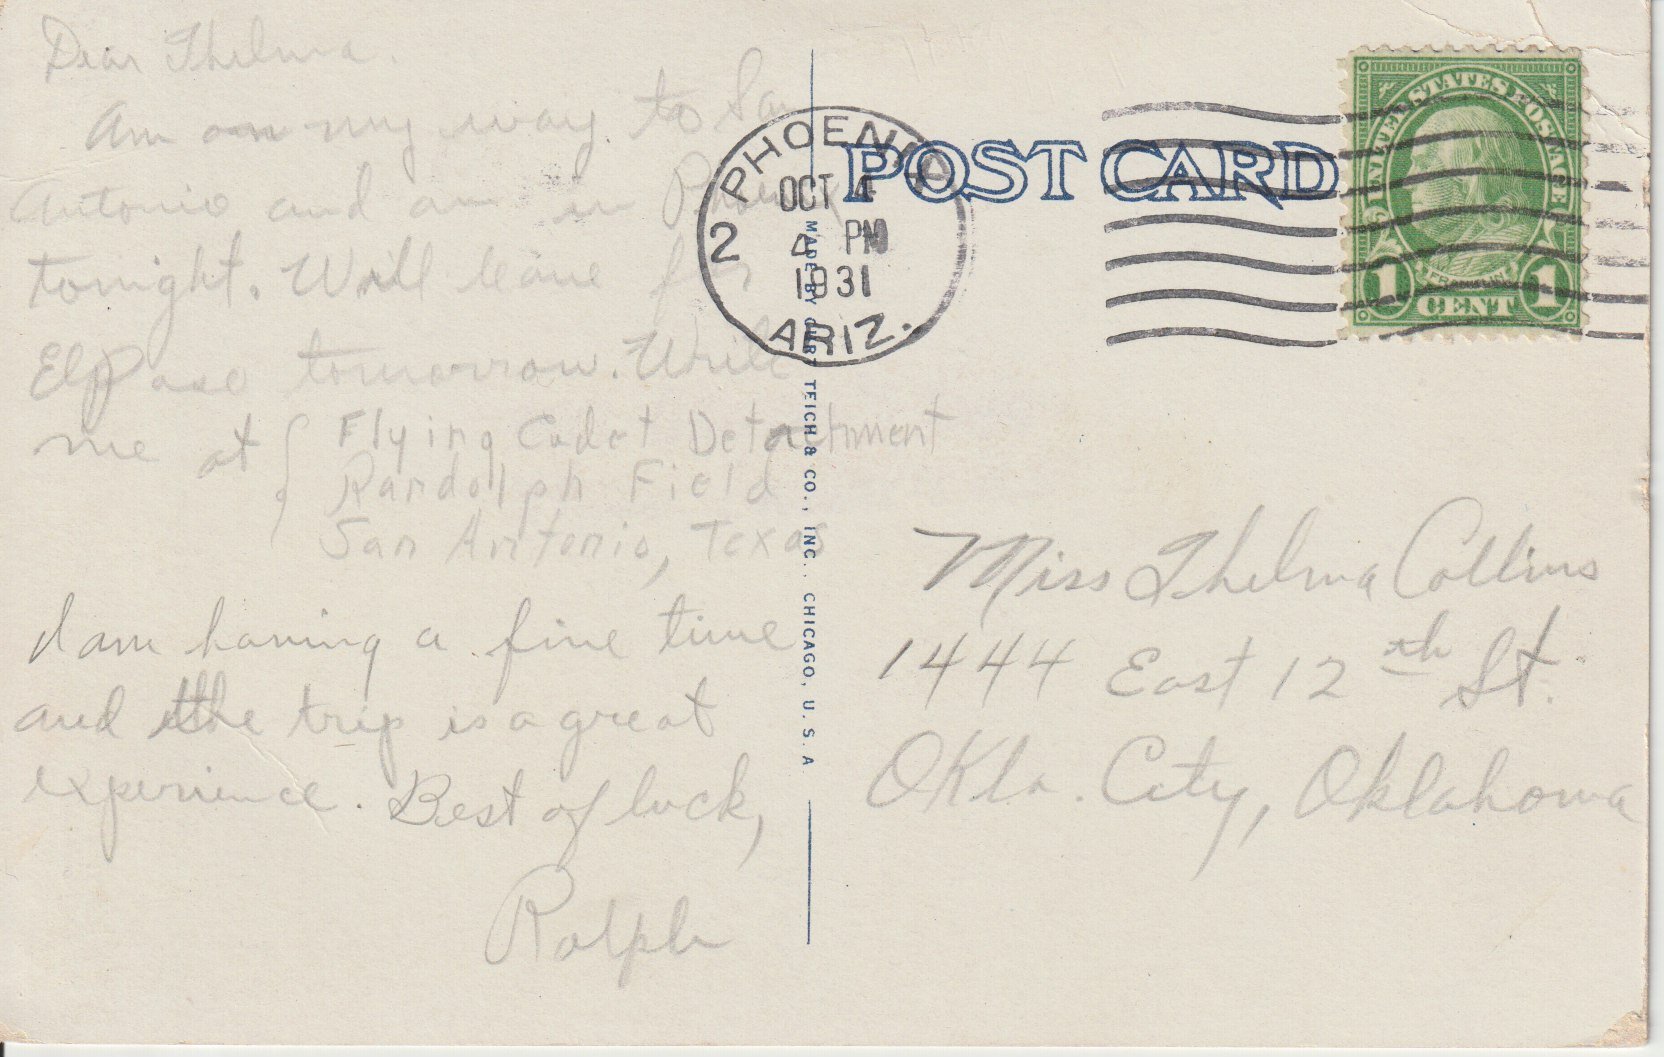 Dear Thelma.
Am on my way to San
Antonio and am in Phoenix
tonight. Will leave for
El Paso tomorrow. Write
me at { Flying Cadet Detachment
Randolph Field
San Antonio, Texas
I am having a fine time
and the trip is a great
experience. Best of luck,
Ralph
MADE BY CURT TEICH & CO., INC., CHICAGO, U.S.A.
PHOENIX
OCT 4
2 4 PM
1931
ARIZ.
POST CARD
UNITED STATES POSTAGE
FRANKLIN
1 CENT 1
Miss Thelma Collins
1444 East 12th St.
Okla. City, Oklahoma